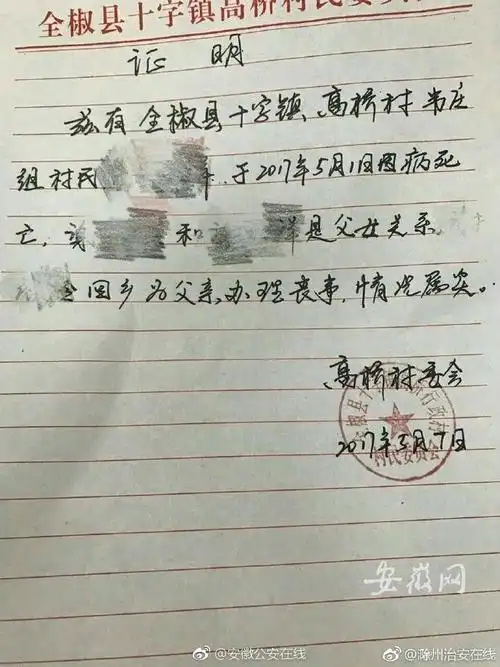 全椒县十字镇高桥村民委
证 明
兹有全椒县十字镇高桥村韦庄
组村民 于2017年5月1日因病死
亡, 和 是父女关系,
回乡为父亲办理丧事,情况属实。
高桥村委会
2017年5月7日
村民委员会
安徽网
@安徽公安在线 @滁州治安在线